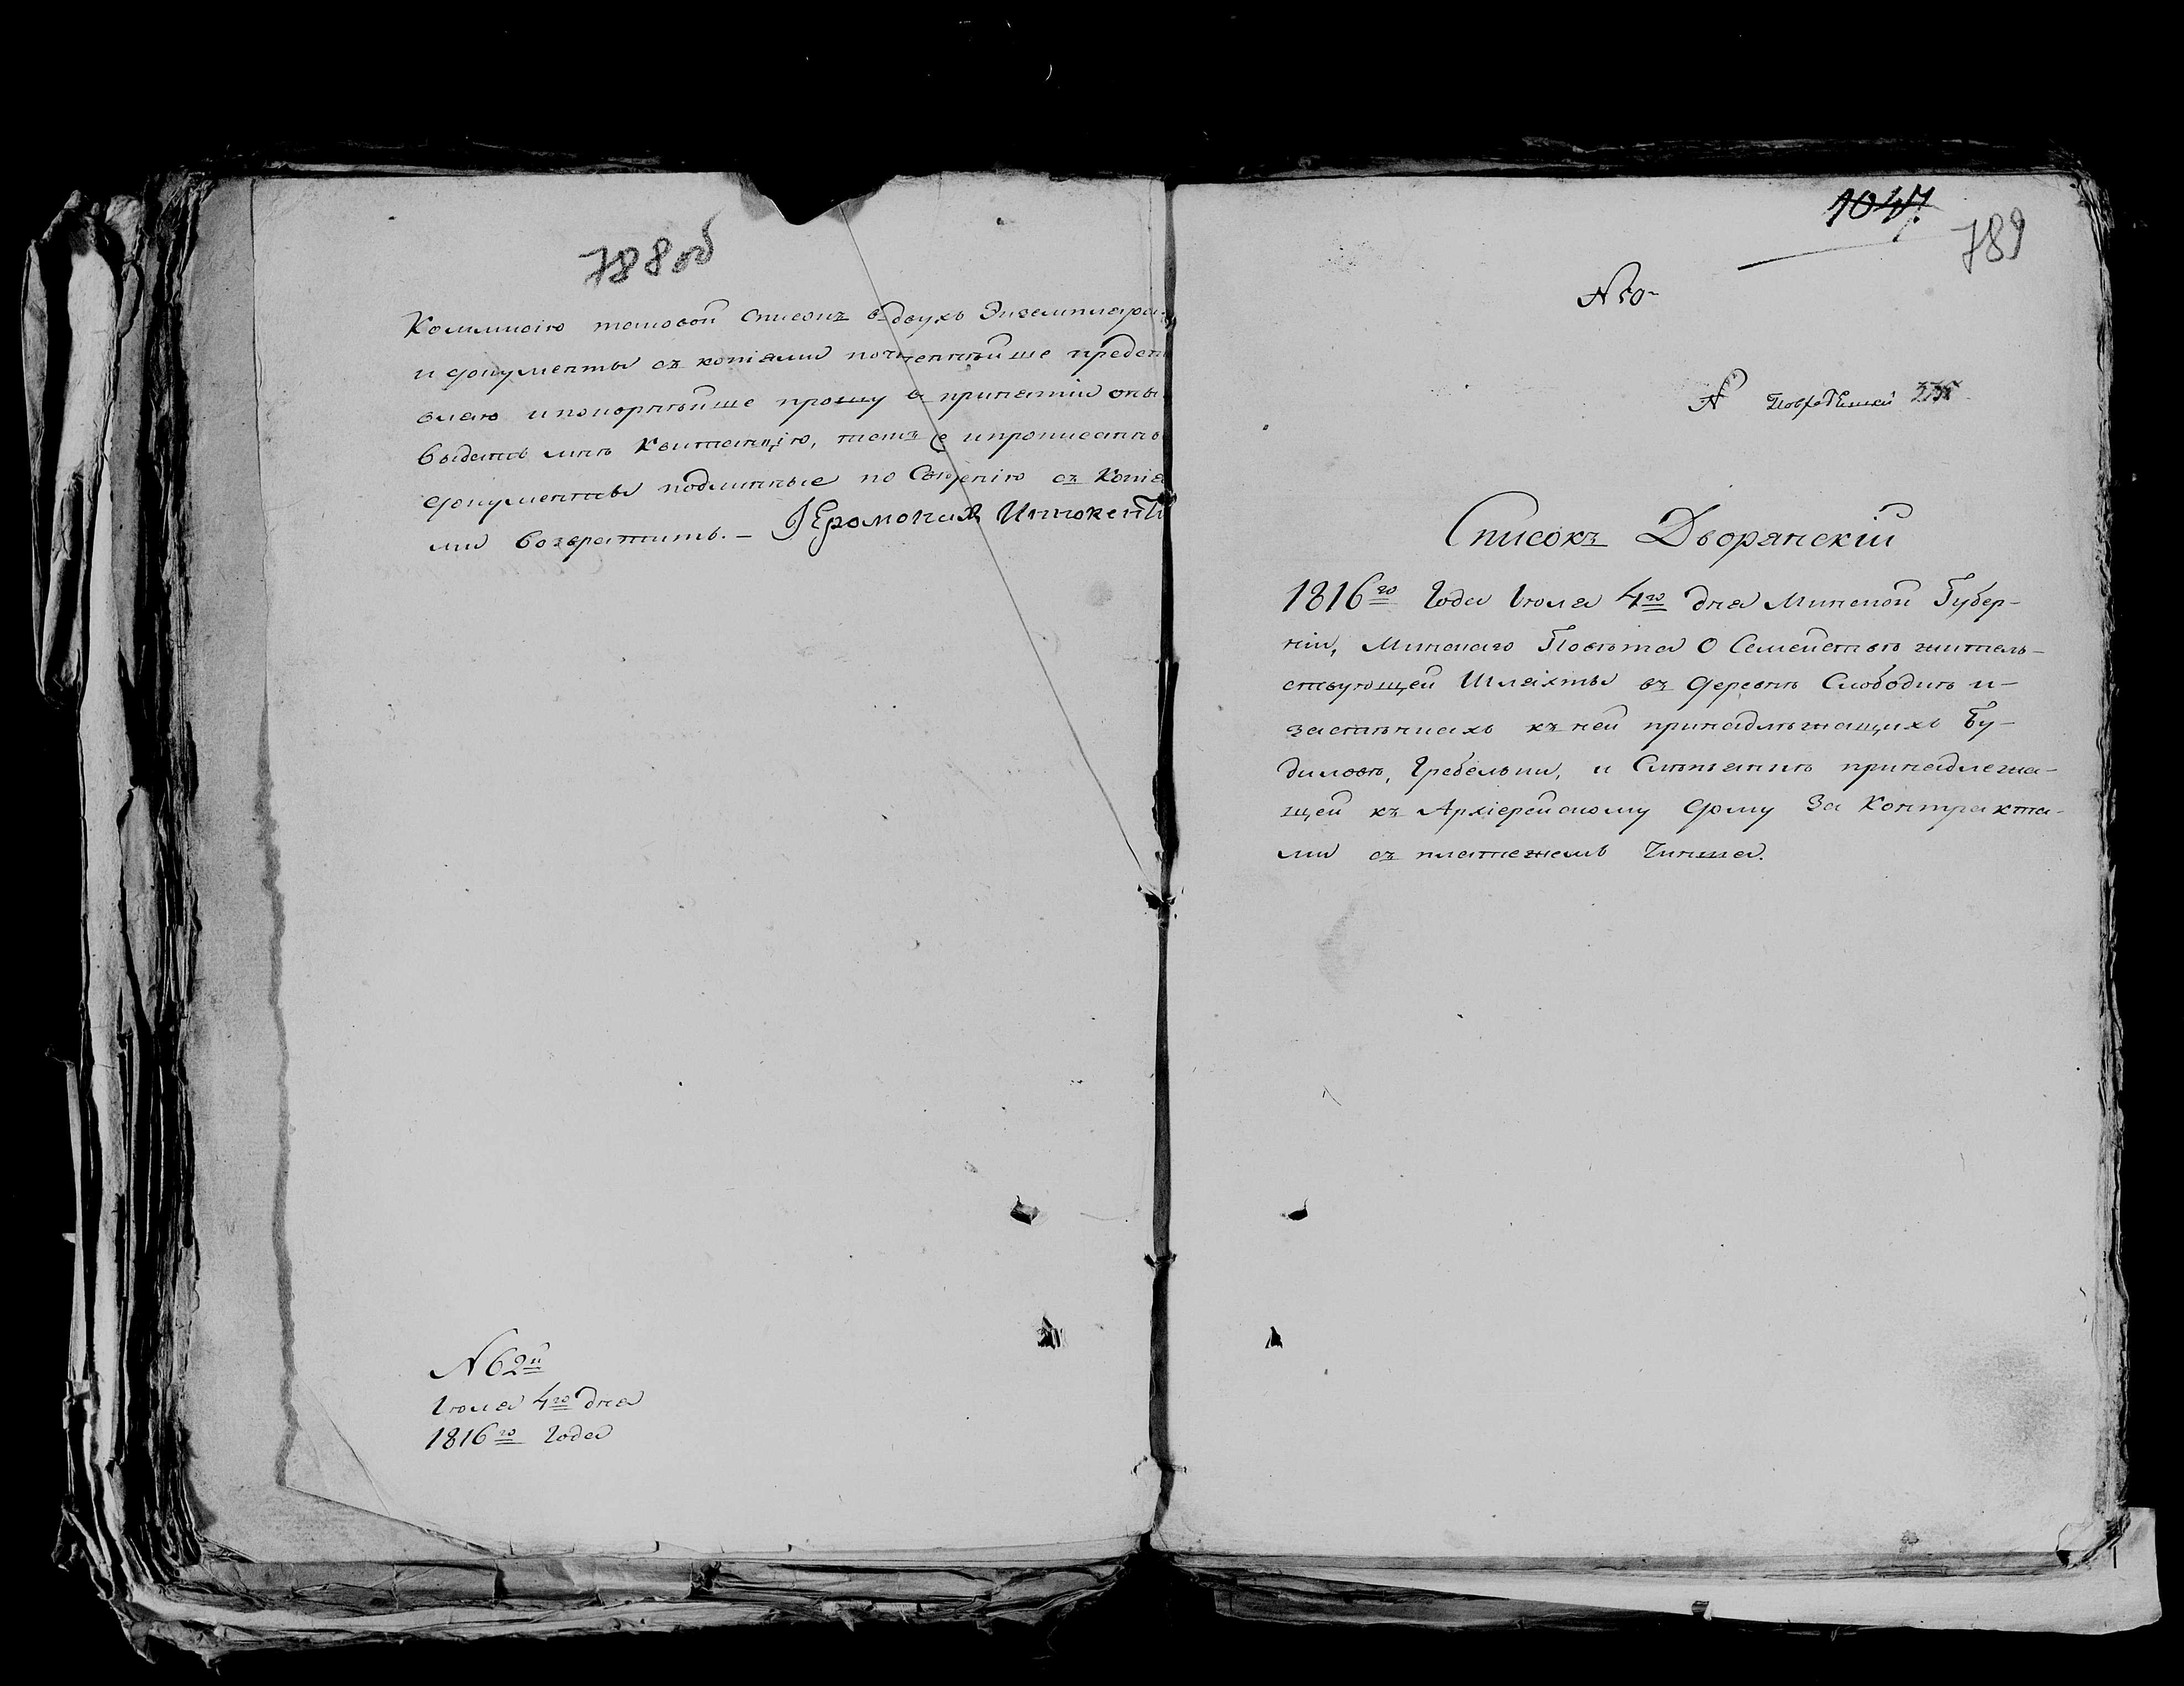 788об
Коммисію таковой списокъ в двухъ Экземпляра
и документы съ копіями почтеннѣйше предст
вляю и покорнѣйше прошу в принятіи оны
выдать мнѣ Квитанцію, и прописанны
документы подлинные по Сводѣнію съ Копія
ми возвратить. – Іеромонах Иннокенті
N 62й
Іюля 4го дня
1816го Года
1047
789
N 50
N Повѣтский
Списокъ Дворянскій
1816го Года Іюля 4го дня Минской Губер-
ніи, Минскаго Повѣта О Семействѣ житель-
ствующей Шляхты въ деревнѣ Слободѣ и-
застѣнкахъ къ ней принадлѣжащихъ Бу-
диловѣ, Гребельки, и Слѣпянкѣ принадлежа-
щей къ Архіерейскому дому За Контракта-
ми съ платежемъ Чинша.